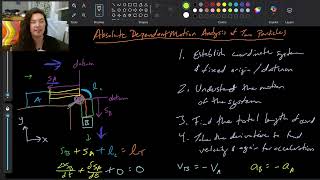 Absolute Dependent Motion Analysis of Two Particles
datum
S_A
l_2
datum
A
S_B
B
y
x
S_B + S_A + l_2 = l_T
dS_B/dt + dS_A/dt + 0 = 0
1. Establish coordinate system
& fixed origin / datum
2. Understand the motion
of the system
3. Find the total length of cord
4. Take the derivative to find
velocity & again for acceleration
v_B = -v_A
a_B = -a_A